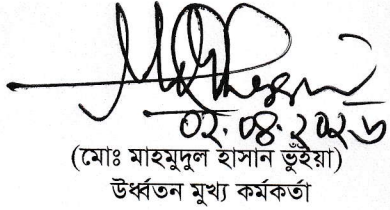 ০২.০৪.২০২৬
(মোঃ মাহমুদুল হাসান ভূঁইয়া)
উর্ধ্বতন মুখ্য কর্মকর্তা